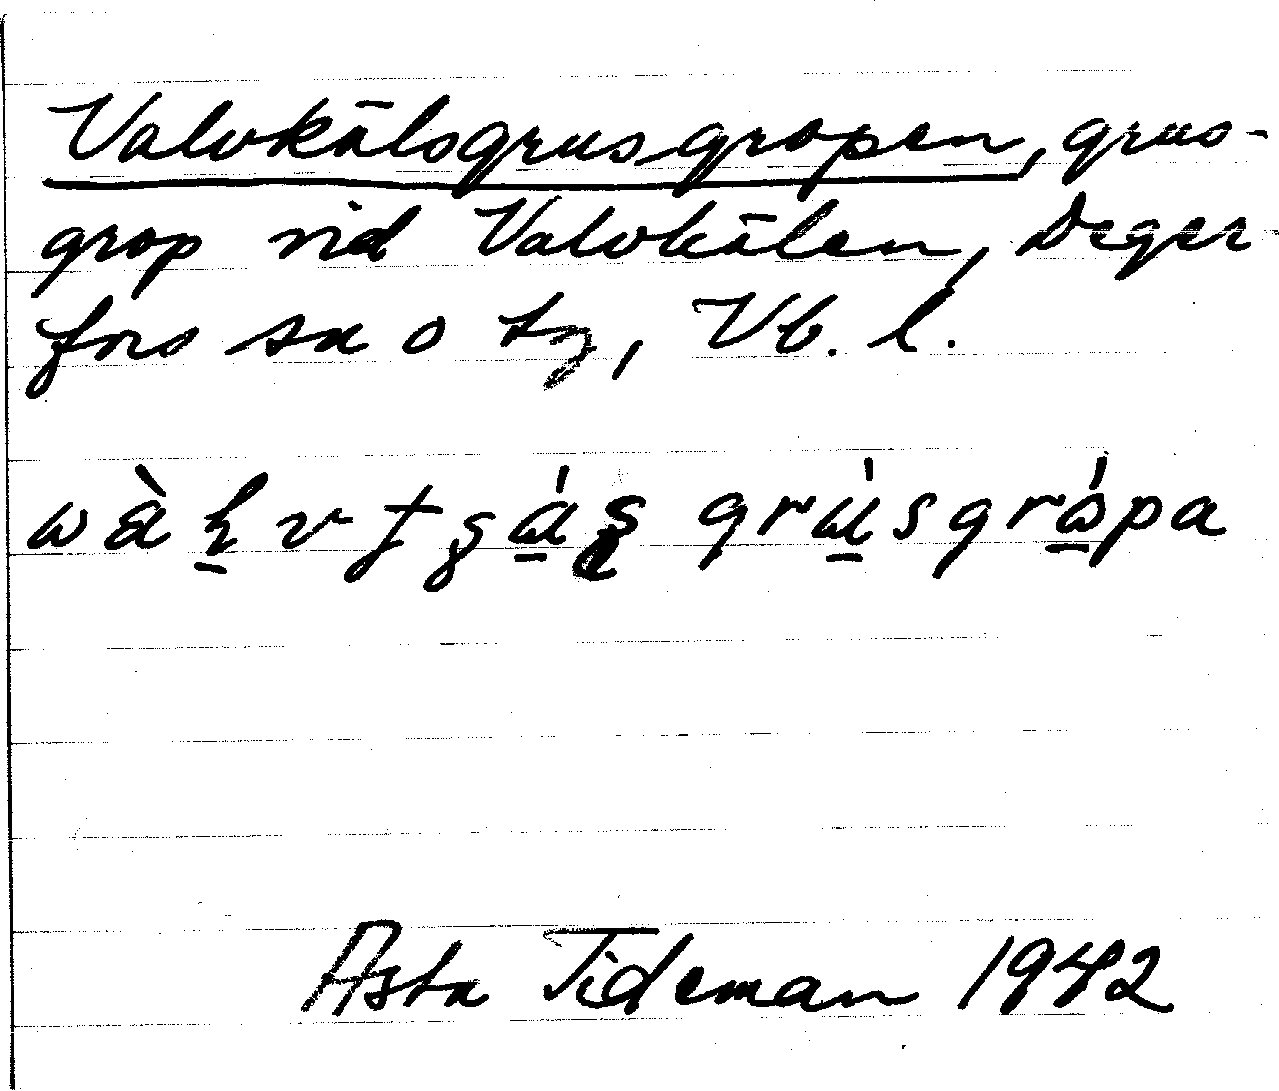 Valvkälsgrusgropen, grus-
grop vid Valvkälen, Deger-
fors sn o tg, Vb. l.
grùsgrópa
Asta Tideman 1942